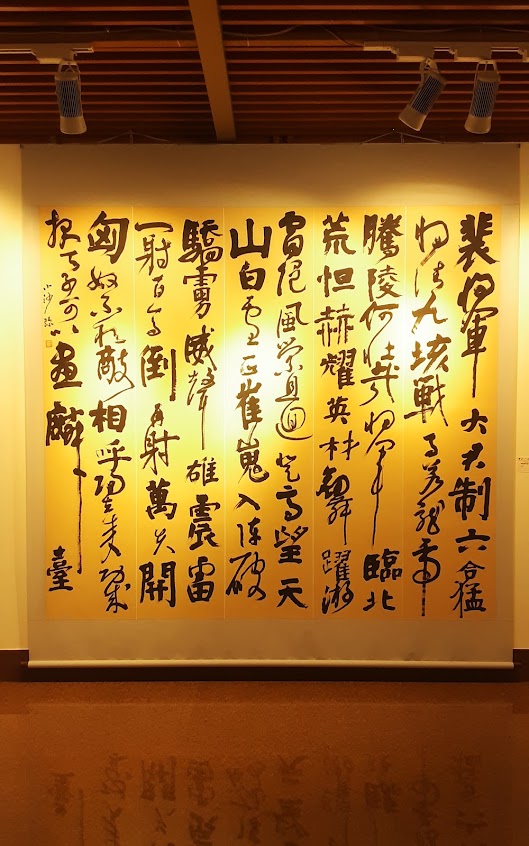 裴將軍大君制六合猛
將清九垓戰馬若龍虎
騰陵何壯哉將軍臨北
荒怛赫耀英材劍舞躍游
電隨風縈且迴登高望天
山白雲正崔嵬入陣破
驕虜威聲雄震雷
一射百馬倒再射萬夫開
匈奴不敢敵相呼歸去來功成
報天子可以畫麟臺